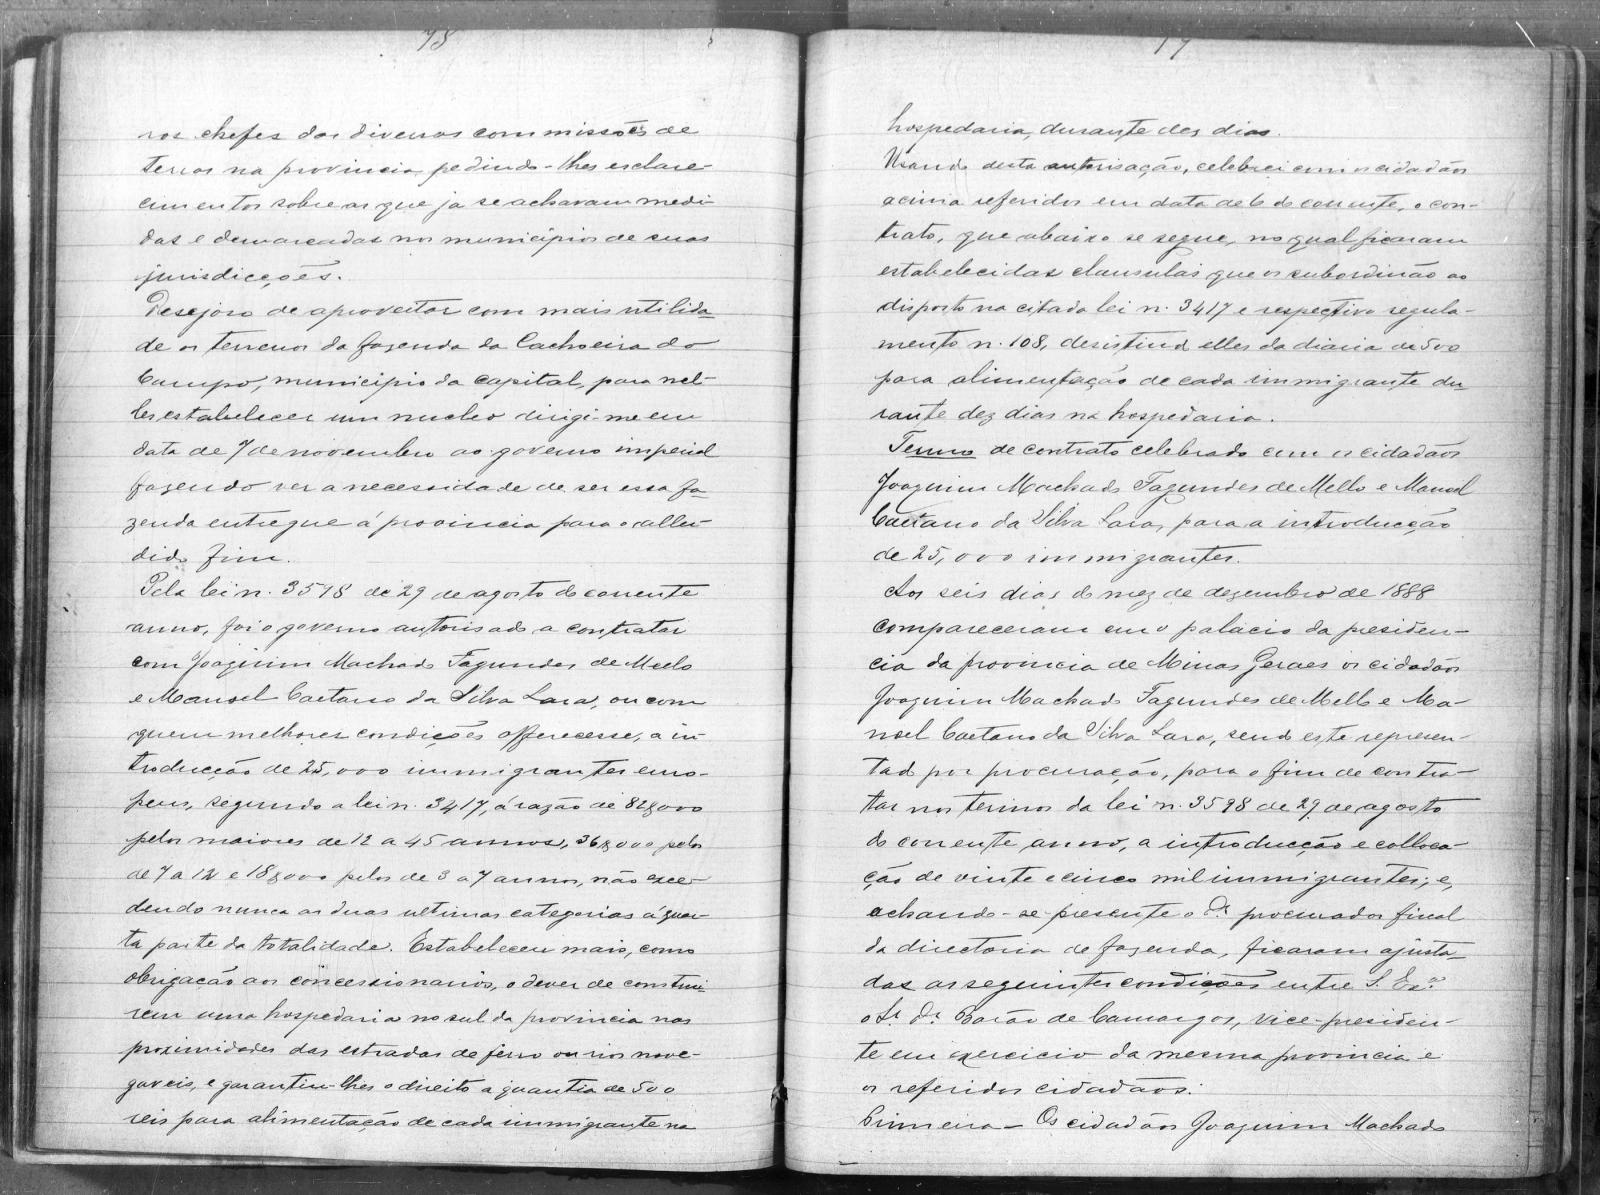 78
ros chefes das diversas commissões de
terras na provincia, pedindo-lhes esclare-
cimentos sobre as que ja se achavam medi-
das e demarcadas nos municipios de suas
jurisdicções.
Desejoso de aproveitar com mais utilida
de os terrenos da fazenda da Cachoeira do
Campo, municipio da capital, para nel-
les estabelecer um nucleo dirigi-me em
data de 7 de novembro ao governo imperial
fazendo ver a necessidade de ser essa fa
zenda entregue á provincia para o allu-
dido fim.
Pela lei n. 3598 de 29 de agosto do corrente
anno, foi o governo autorisado a contratar
com Joaquim Machado Fagundes de Mello
e Manoel Caetano da Silva Lara, ou com
quem melhores condições offerecesse, a in
troducção de 25,000 immigrantes euro-
peus, segundo a lei n. 3417, á razão de 82$000
pelos maiores de 12 a 45 annos, 36$000 pelos
de 7 a 12 e 18$000 pelos de 3 a 7 annos, não exce-
dendo nunca as duas ultimas categorias á quar-
ta parte da totalidade. Estabeleceu mais, como
obrigação aos concessionarios, o dever de construi
rem uma hospedaria no sul da provincia nas
proximidades das estradas de ferro ou rios nave-
gaveis, e garantiu-lhes o direito a quantia de 500
reis para alimentação de cada immigrante na
hospedaria, durante dez dias.
Usando desta autorisação, celebrei com os cidadãos
acima referidos em data de 6 do corrente, o con-
trato, que abaixo se segue, no qual ficaram
estabelecidas clausulas que os subordinão ao
disposto na citada lei n. 3417 e respectivo regula-
mento n. 108, desistindo elles da diaria de 500
para alimentação de cada immigrante du
rante dez dias na hospedaria.
Termo de contrato celebrado com os cidadãos
Joaquim Machado Fagundes de Mello e Manoel
Caetano da Silva Lara, para a introducção
de 25,000 immigrantes.
Aos seis dias do mez de dezembro de 1888
compareceram em o palacio da presiden-
cia da provincia de Minas Geraes os cidadãos
Joaquim Machado Fagundes de Mello e Ma-
noel Caetano da Silva Lara, sendo este represen-
tado por procuração, para o fim de contra-
tar nos termos da lei n. 3598 de 29 de agosto
do corrente anno, a introducção e colloca-
ção de vinte e cinco mil immigrantes; e,
achando-se presente o Dr. procurador fiscal
da directoria de fazenda, ficaram ajusta
das as seguintes condições entre S. Exª.
o Sr. Dr. Barão de Camargos, vice-presiden-
te em exercicio da mesma provincia e
os referidos cidadãos:
Primeira — Os cidadãos Joaquim Machado